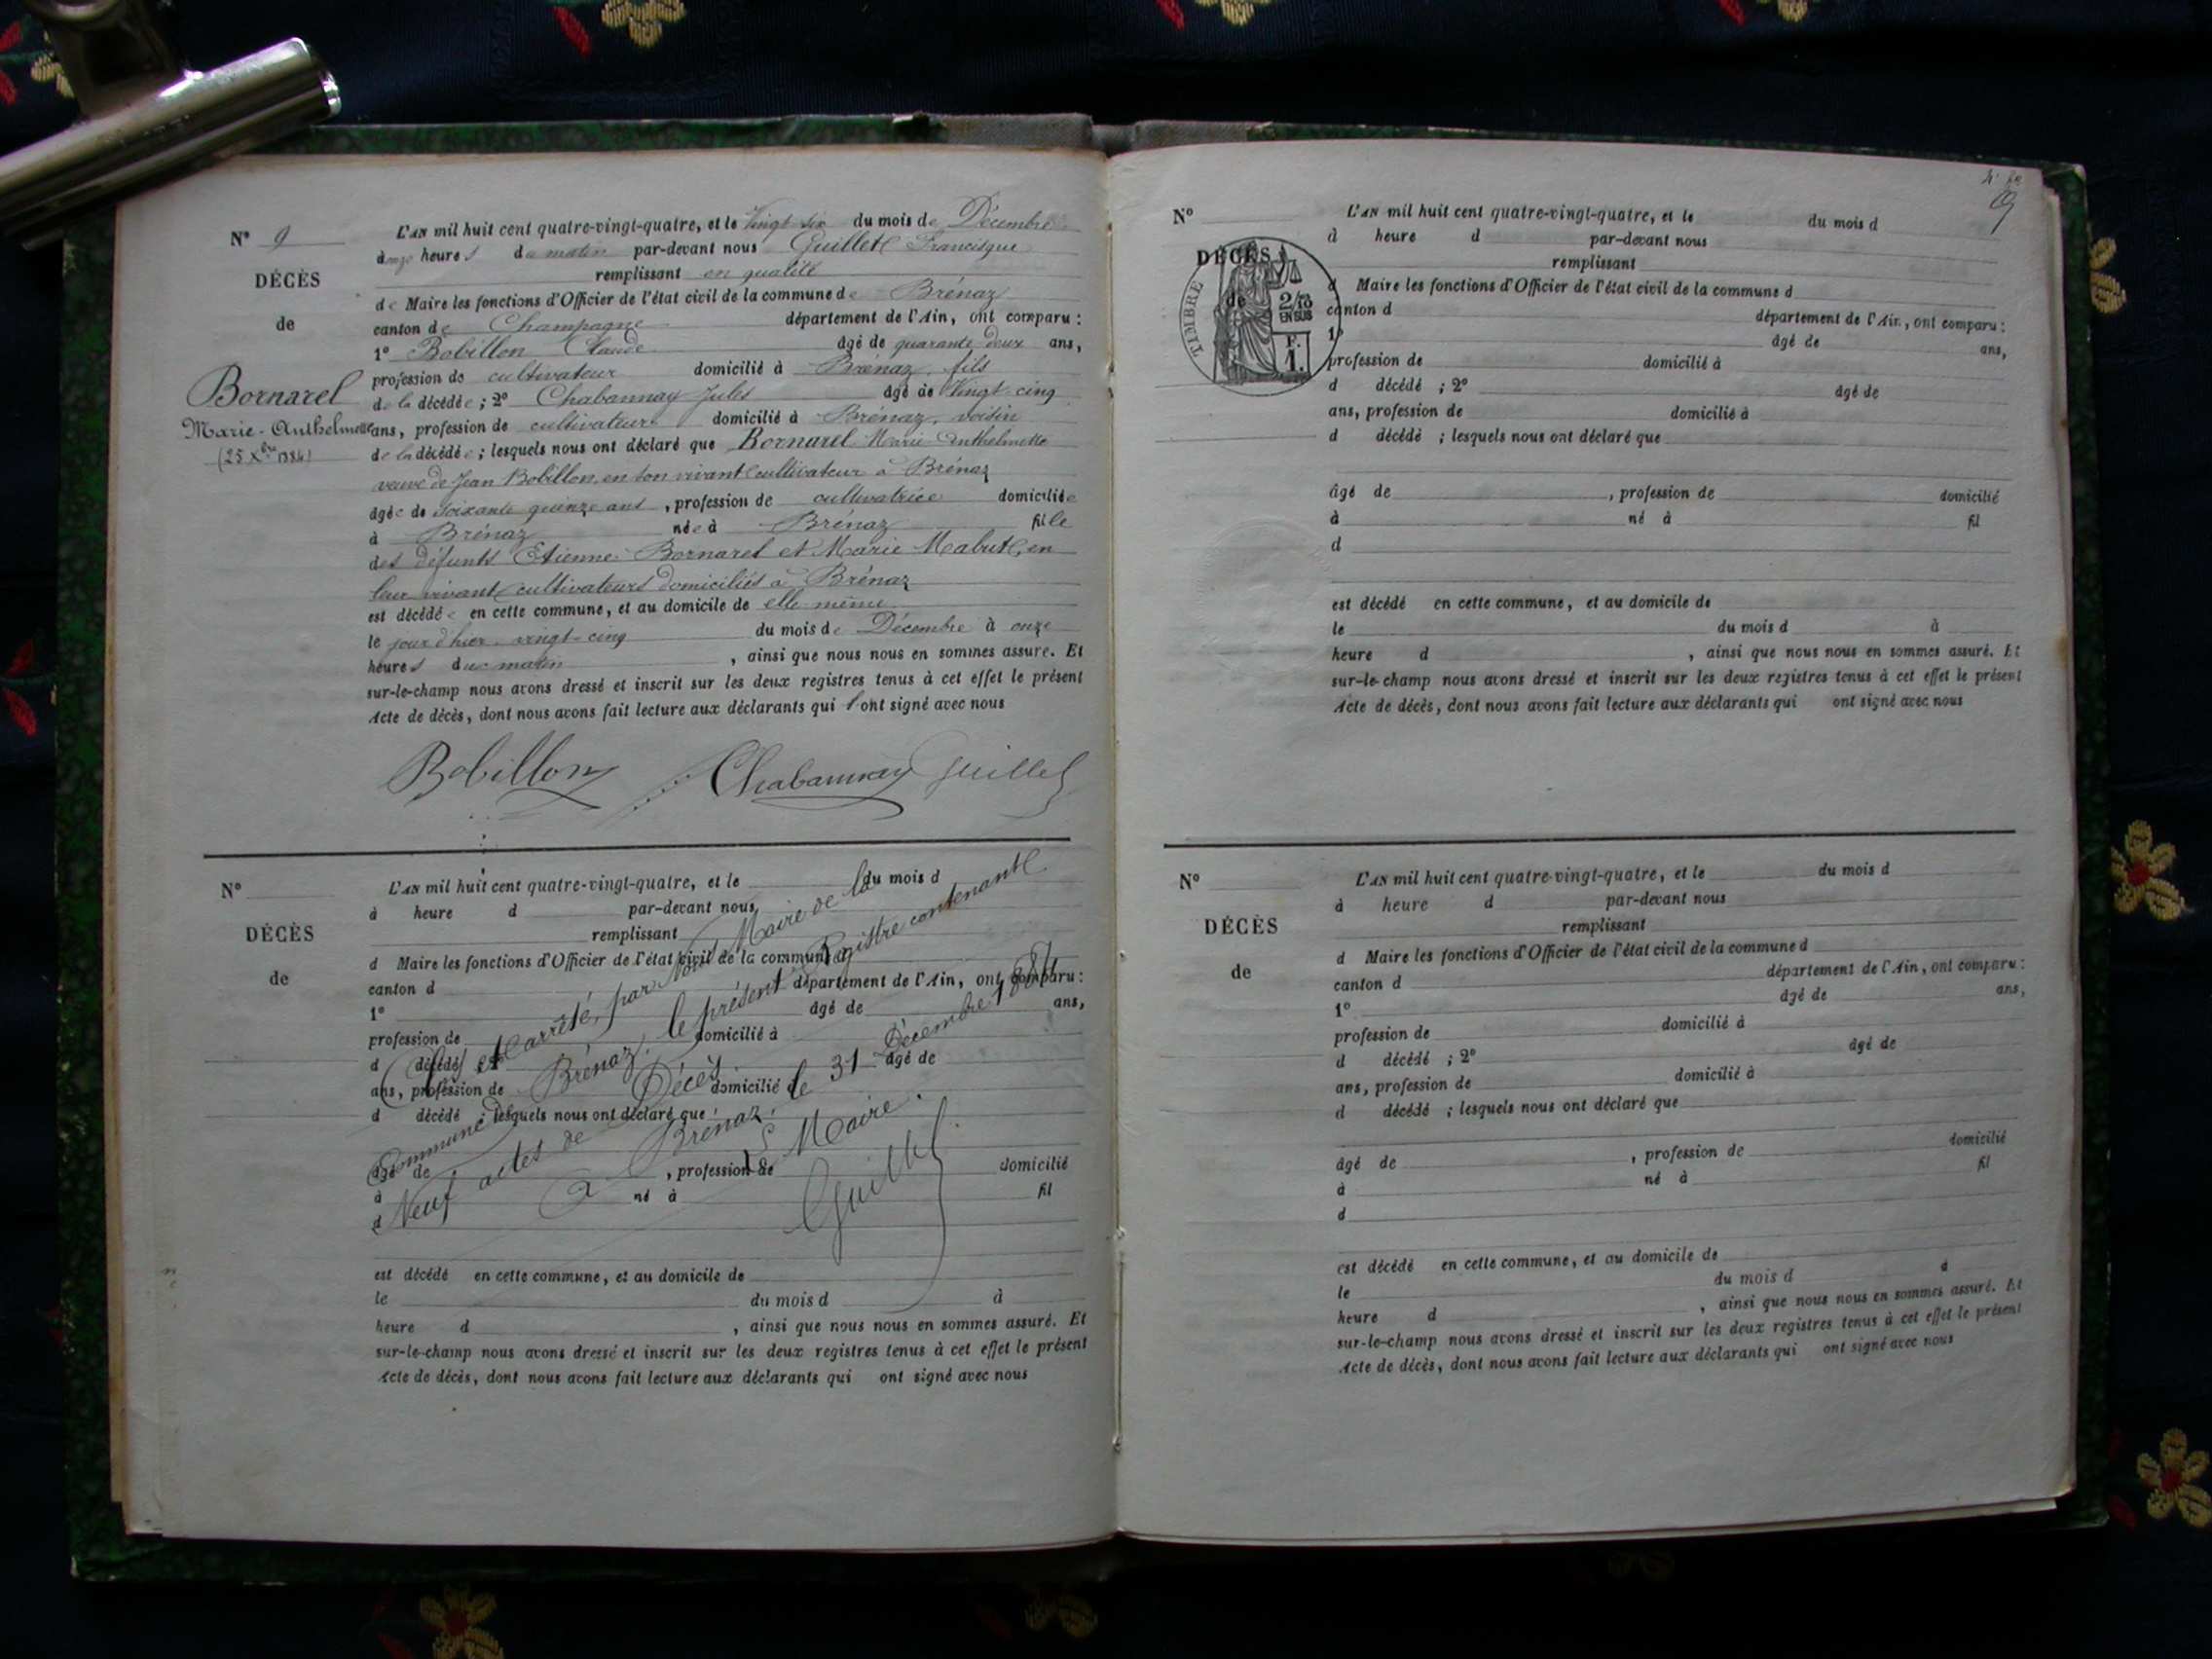 N° 9
DÉCÈS
de
Bornarel
Marie-Anthelmette
(25 Xbre 1884)
L'AN mil huit cent quatre-vingt-quatre, et le Vingt six du mois de Décembre
à onze heures du matin par-devant nous Guillet Francisque
remplissant en qualité
de Maire les fonctions d'Officier de l'état civil de la commune de Brénaz
canton de Champagne département de l'Ain, ont comparu :
1° Bobillon Claude âgé de quarante deux ans,
profession de cultivateur domicilié à Brénaz, fils
de la décédée ; 2° Chabannay Jules âgé de Vingt cinq
ans, profession de cultivateur domicilié à Brénaz, voisin
de la décédée ; lesquels nous ont déclaré que Bornarel Marie Anthelmette
veuve de Jean Bobillon, en son vivant cultivateur à Brénaz
âgée de soixante quinze ans , profession de cultivatrice domiciliée
à Brénaz née à Brénaz fille
des défunts Etienne Bornarel et Marie Mabut, en
leur vivant cultivateurs domiciliés à Brénaz
est décédée en cette commune, et au domicile de elle même
le jour d'hier vingt-cinq du mois de Décembre à onze
heures du matin , ainsi que nous nous en sommes assuré. Et
sur-le-champ nous avons dressé et inscrit sur les deux registres tenus à cet effet le présent
Acte de décès, dont nous avons fait lecture aux déclarants qui l'ont signé avec nous
Bobillon Chabannay Guillet
N°
DÉCÈS
de
L'AN mil huit cent quatre-vingt-quatre, et le du mois d
à heure d par-devant nous
remplissant
d Maire les fonctions d'Officier de l'état civil de la commune d
canton d département de l'Ain, ont comparu :
1° âgé de ans,
profession de domicilié à
d décédé ; 2° âgé de
ans, profession de domicilié à
d décédé ; lesquels nous ont déclaré que
âgé de , profession de domicilié
à né à fil
d
est décédé en cette commune, et au domicile de
le du mois d à
heure d , ainsi que nous nous en sommes assuré. Et
sur-le-champ nous avons dressé et inscrit sur les deux registres tenus à cet effet le présent
Acte de décès, dont nous avons fait lecture aux déclarants qui ont signé avec nous
Clos et arrêté, par Nous Maire de la
Commune de Brénaz, le présent Registre contenant
Neuf actes de Décès
à Brénaz, le 31 Décembre 1884
Le Maire.
Guillet
9
N°
DÉCÈS
de
TIMBRE
2/10
EN SUS
F.
1.
L'AN mil huit cent quatre-vingt-quatre, et le du mois d
à heure d par-devant nous
remplissant
d Maire les fonctions d'Officier de l'état civil de la commune d
canton d département de l'Ain, ont comparu :
1° âgé de ans,
profession de domicilié à
d décédé ; 2° âgé de
ans, profession de domicilié à
d décédé ; lesquels nous ont déclaré que
âgé de , profession de domicilié
à né à fil
d
est décédé en cette commune, et au domicile de
le du mois d à
heure d , ainsi que nous nous en sommes assuré. Et
sur-le-champ nous avons dressé et inscrit sur les deux registres tenus à cet effet le présent
Acte de décès, dont nous avons fait lecture aux déclarants qui ont signé avec nous
N°
DÉCÈS
de
L'AN mil huit cent quatre-vingt-quatre, et le du mois d
à heure d par-devant nous
remplissant
d Maire les fonctions d'Officier de l'état civil de la commune d
canton d département de l'Ain, ont comparu :
1° âgé de ans,
profession de domicilié à
d décédé ; 2° âgé de
ans, profession de domicilié à
d décédé ; lesquels nous ont déclaré que
âgé de , profession de domicilié
à né à fil
d
est décédé en cette commune, et au domicile de
le du mois d à
heure d , ainsi que nous nous en sommes assuré. Et
sur-le-champ nous avons dressé et inscrit sur les deux registres tenus à cet effet le présent
Acte de décès, dont nous avons fait lecture aux déclarants qui ont signé avec nous